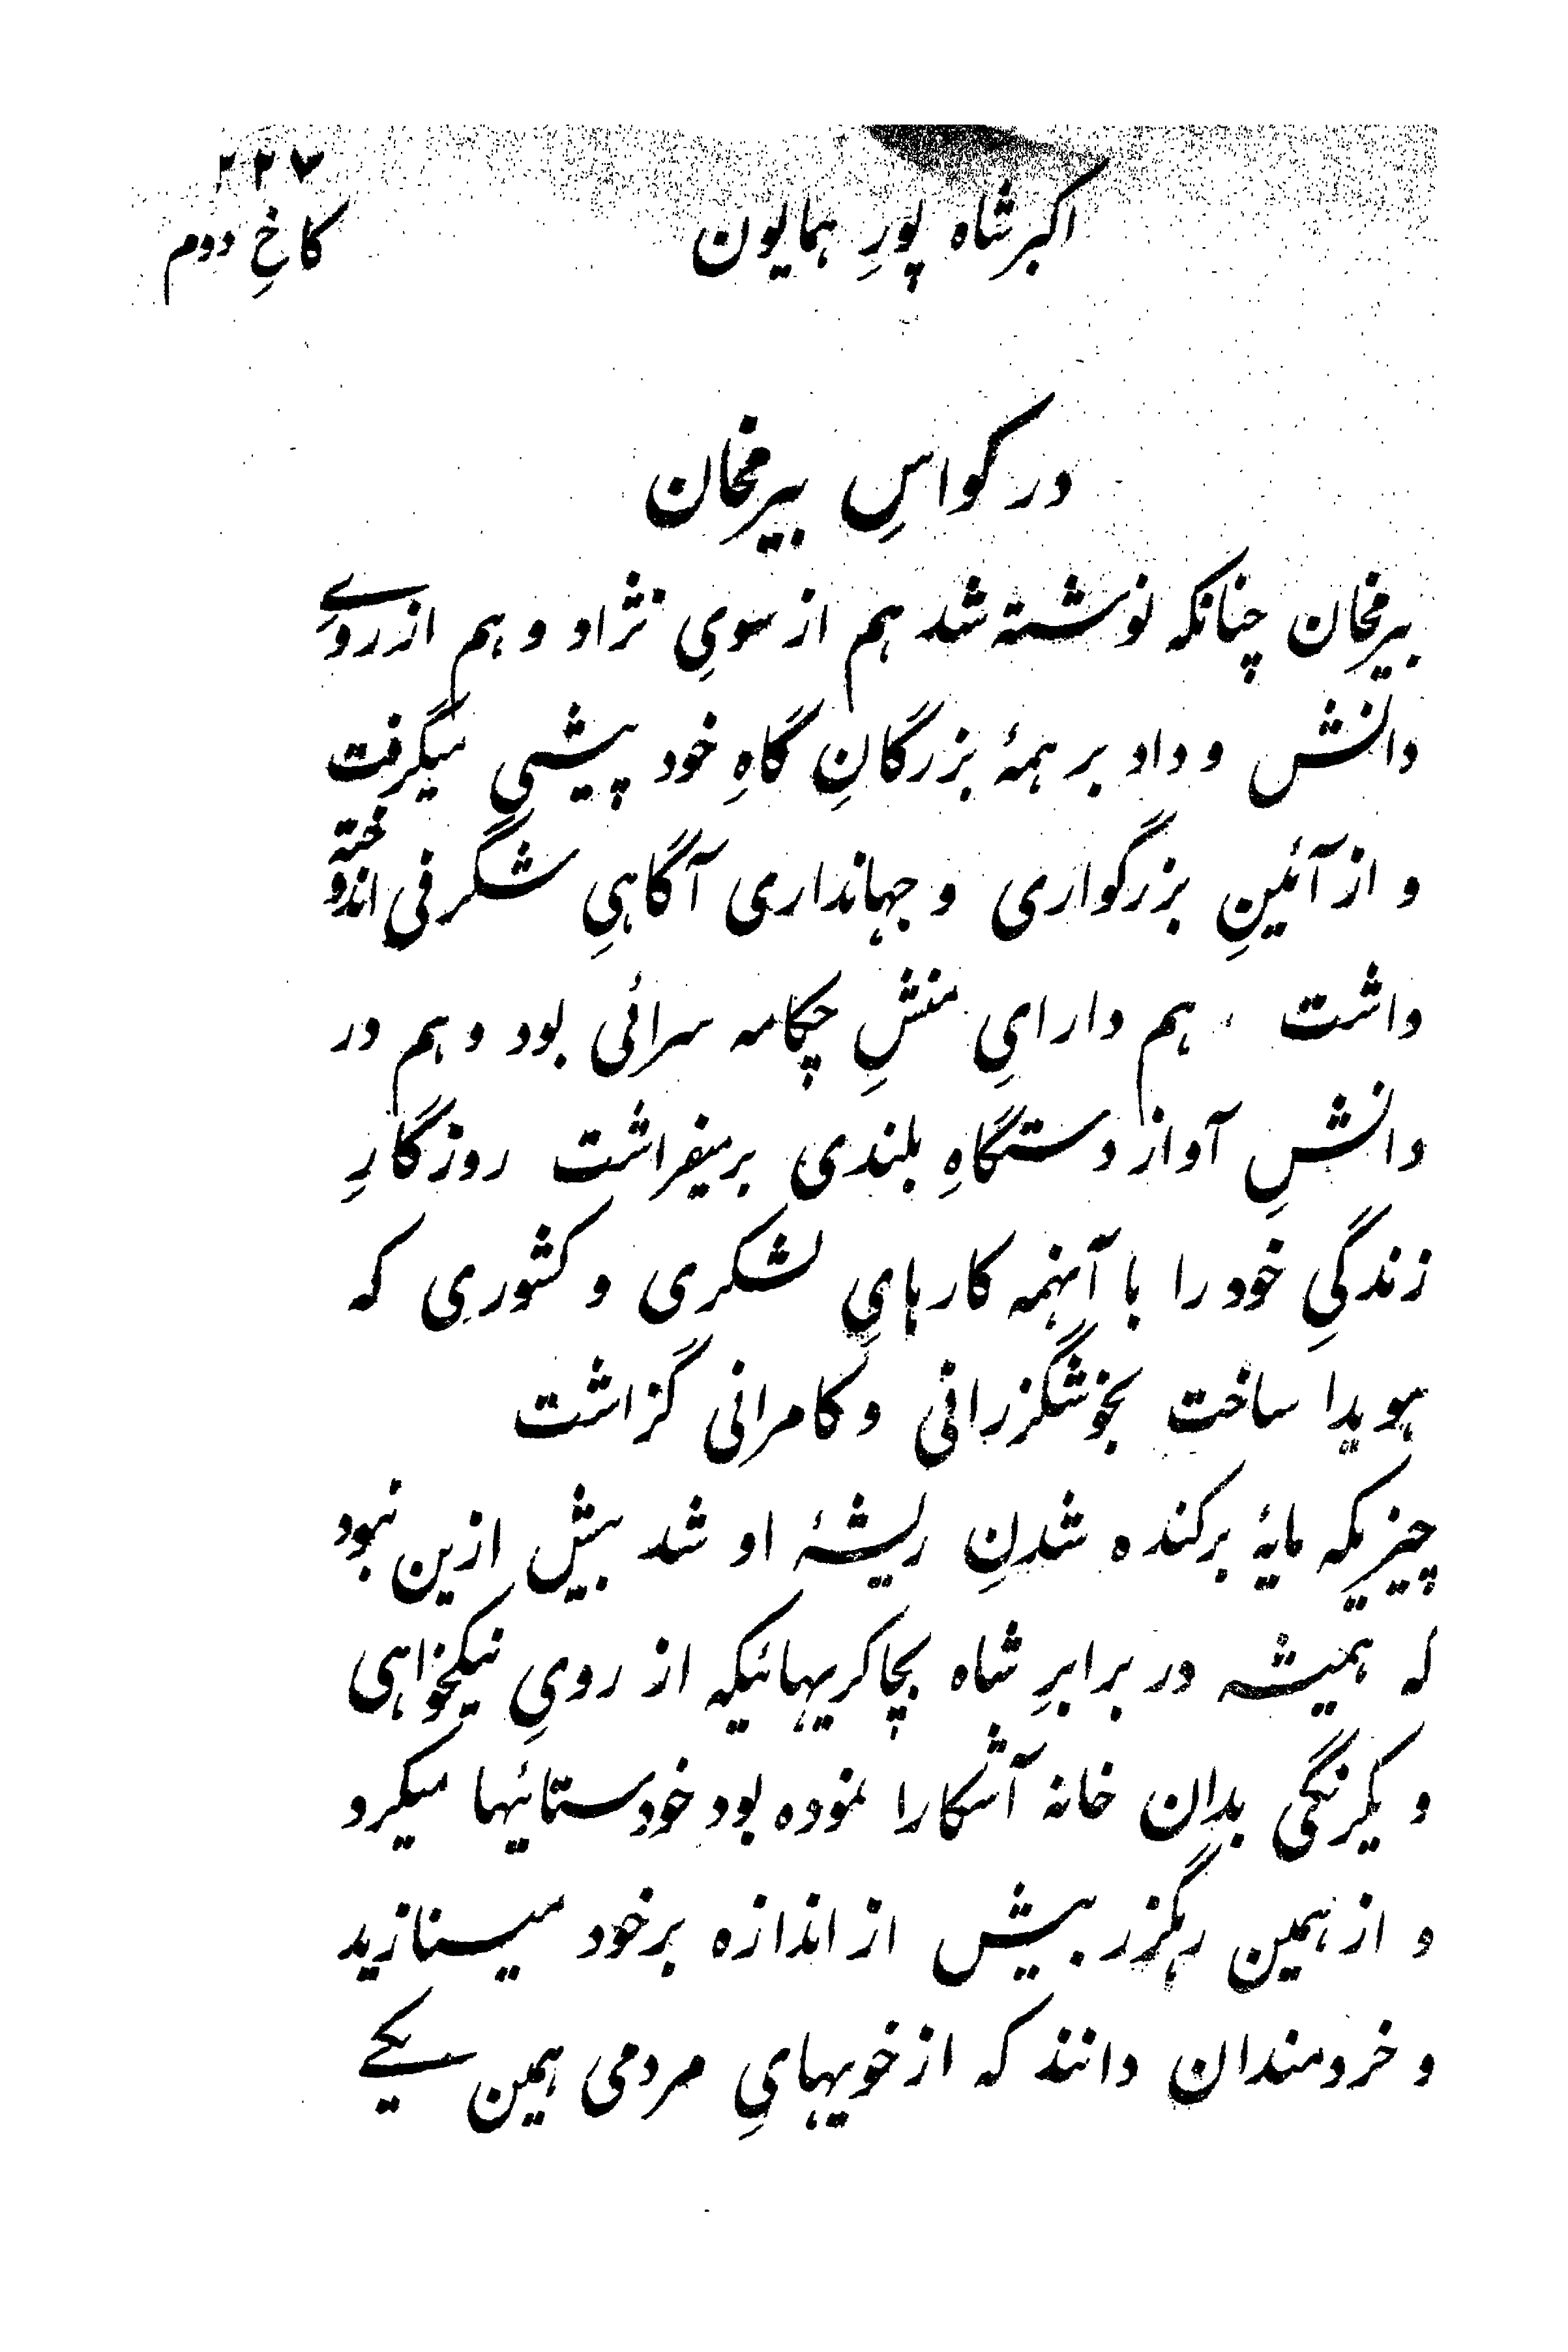 ۲۲۷
اکبر شاه پورِ همایون کاخِ دوم
در کواسِ بیرمخان
بیرمخان چنانکه نوشته شد هم از سویِ نژاد و هم از رویِ
دانش و داد بر همهٔ بزرگانِ گاهِ خود پیشی میگرفت
و از آئینِ بزرگواری و جهانداری آگاهیِ شگرفی اندوخته
داشت ، هم دارایِ منشِ چکامه سرائی بود و هم در
دانشِ آواز دستگاهِ بلندی برمیفراشت روزگارِ
زندگیِ خود را با آنهمه کارهایِ لشکری و کشوری که
هویدا ساخت بخوشگزرانی و کامرانی گزاشت
چیزیکه مایهٔ برکنده شدنِ ریشهٔ او شد بیش ازین نبود
که همیشه در برابرِ شاه بچاکریهائیکه از رویِ نیکخواهی
و یکرنگی بدان خانه آشکارا نموده بود خودستائیها میکرد
و از همین رهگزر بیش از اندازه بر خود مینازید
و خردمندان دانند که از خویهایِ مردمی همین یکے